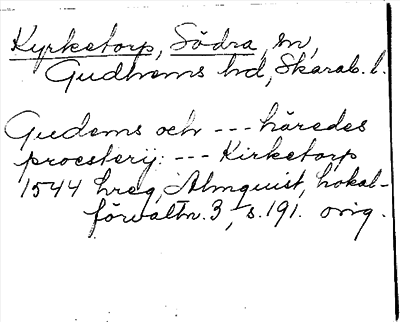 Kyrketorp, Södra, sn,
Gudhems hd, Skarab. l.
Gudems och --- häredes
proesterij: --- Kirketorp
1544 hreg, Almquist, Lokal-
förvaltn. 3, s. 191. orig.